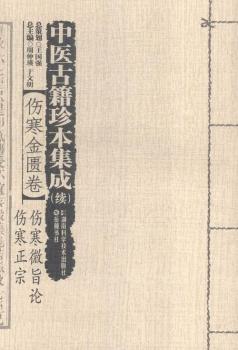 总策划◎王国强
总主编◎周仲瑛 于文明
中医古籍珍本集成(续)
【伤寒金匮卷】
伤寒微旨论
伤寒正宗
湖南科学技术出版社
岳麓书社